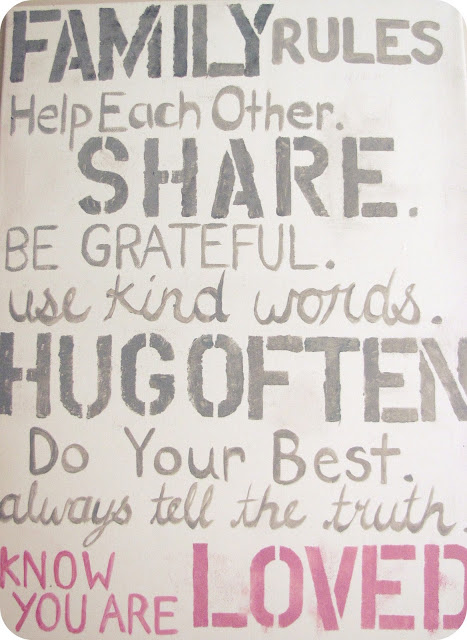 FAMILY RULES
Help Each Other.
SHARE.
BE GRATEFUL.
use kind words.
HUG OFTEN
Do Your Best.
always tell the truth.
KNOW
YOU ARE LOVED